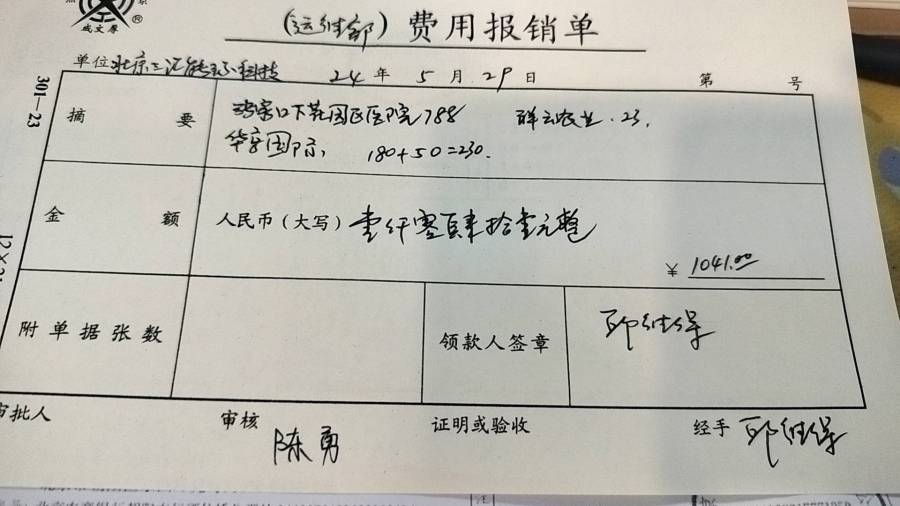 成文厚
(运维部) 费用报销单
单位 北京三汇能环科技 24 年 5 月 29 日 第 号
301—23
摘 要 张家口下花园区医院788 群云农业.23,
华享国际, 180+50=230.
金 额 人民币(大写) 壹仟零百肆拾壹元整
¥ 1041.00
附单据张数 领款人签章 邱维保
审批人 审核 陈勇 证明或验收 经手 邱维保